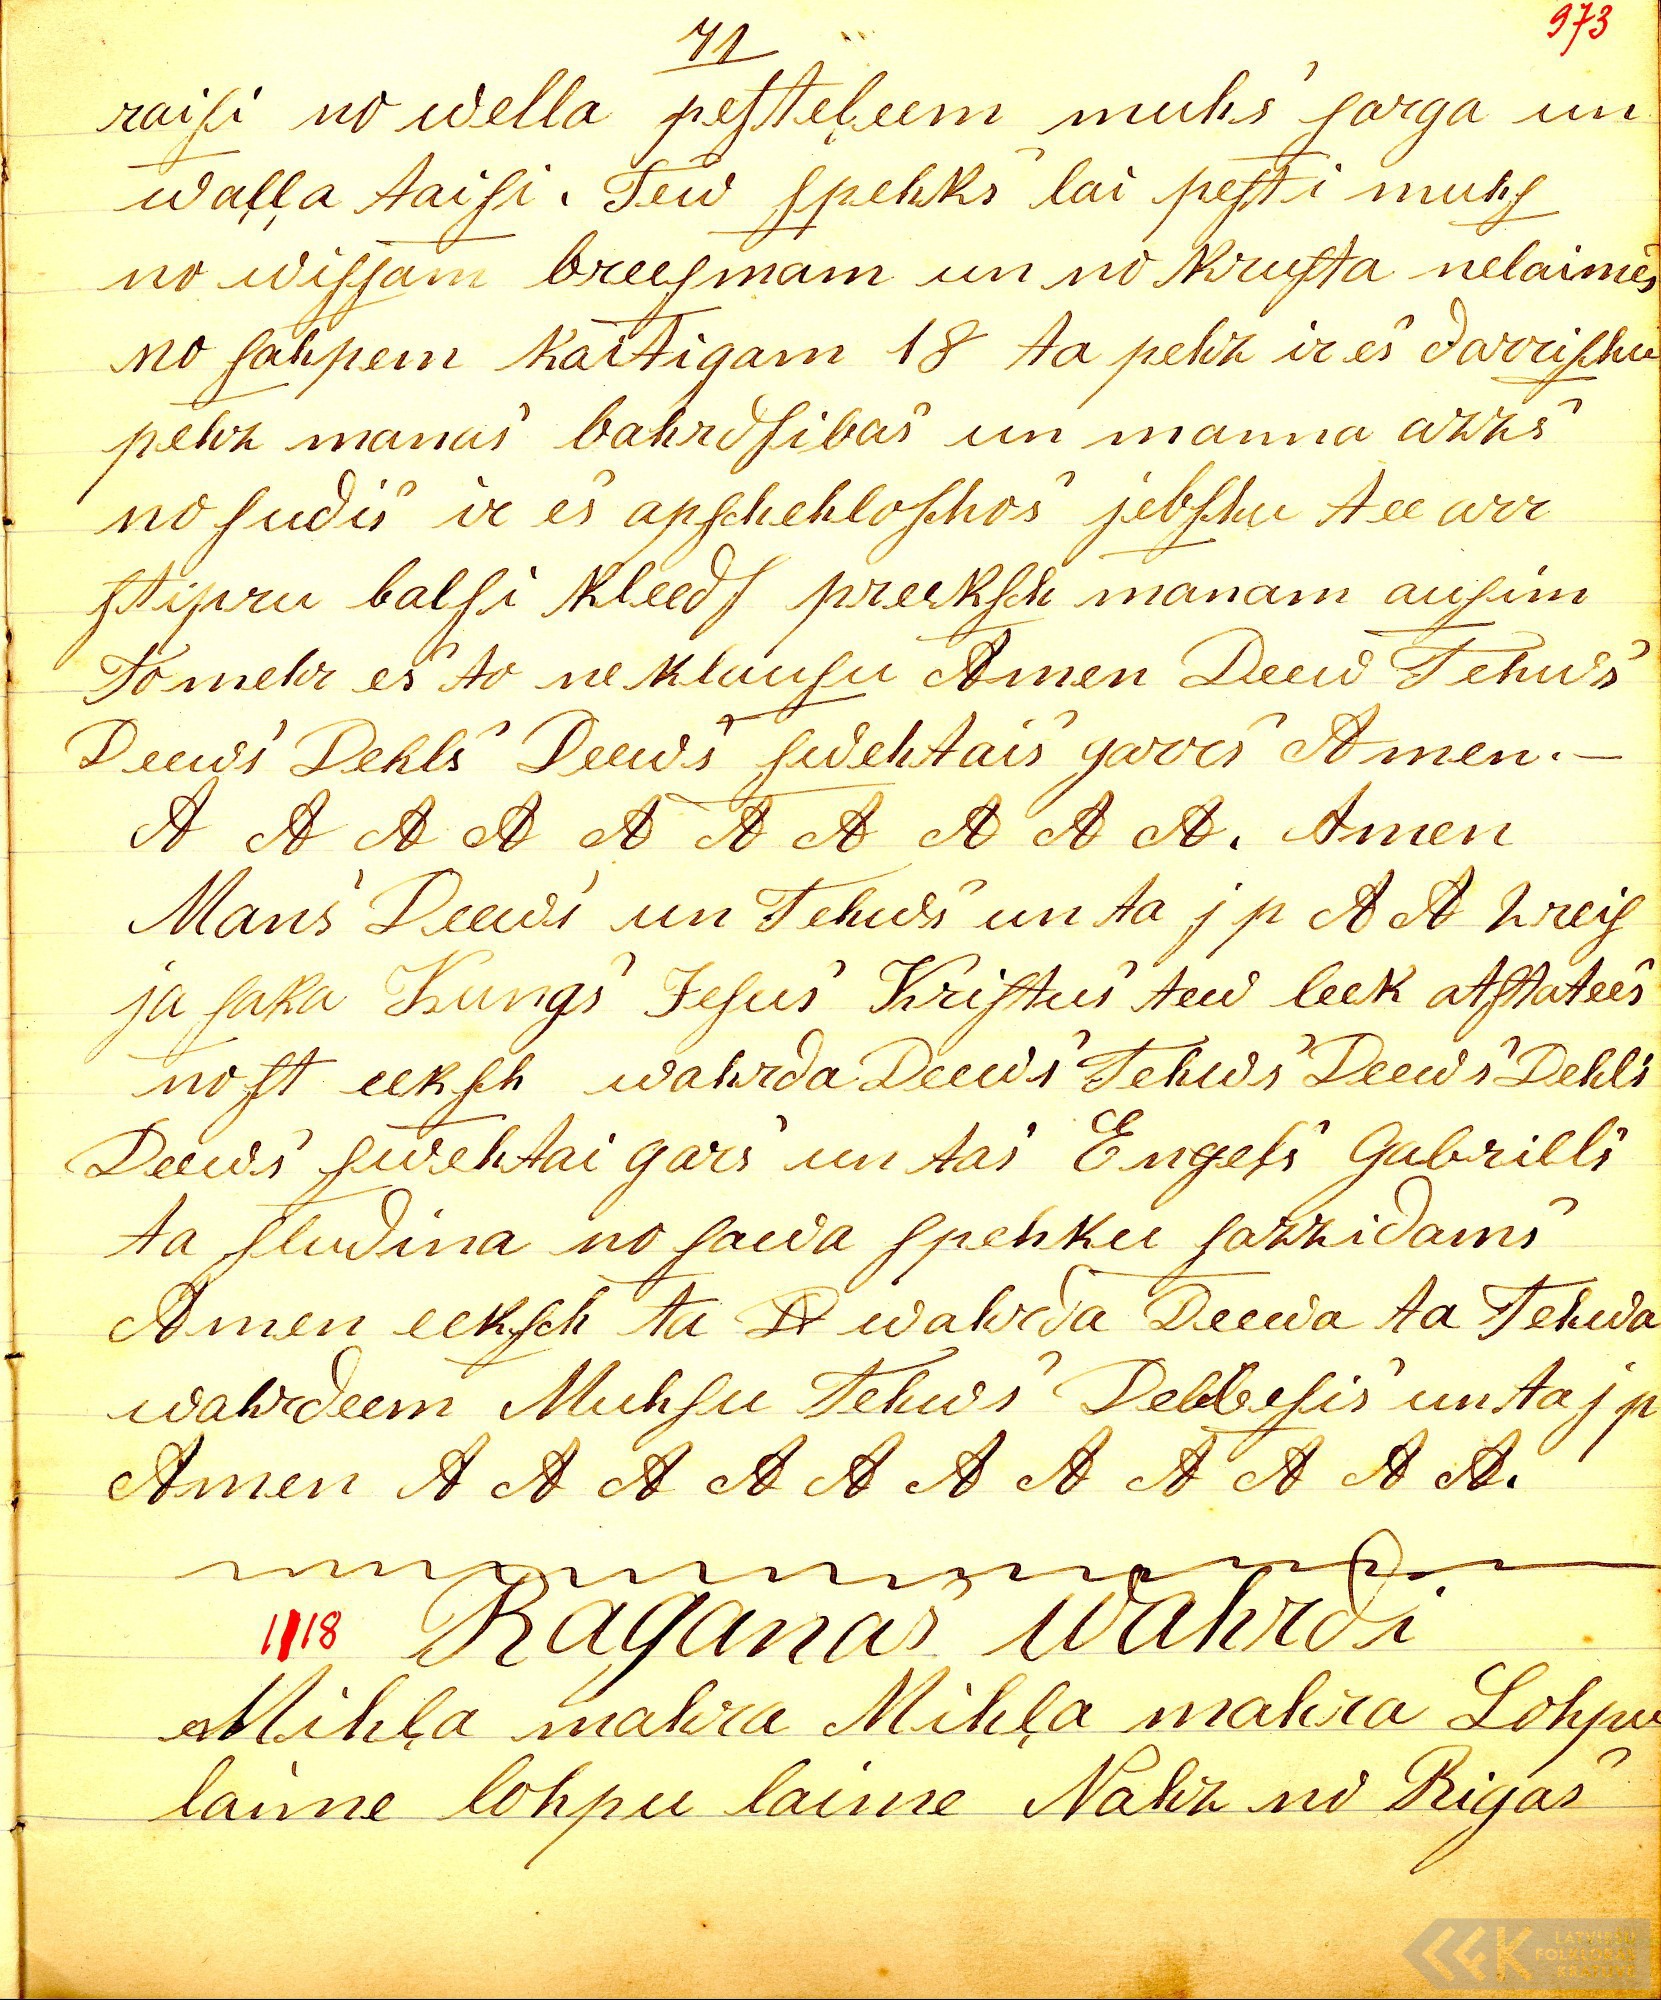 71
973
raiſi no wella peſteļeem muhs ſarga un
waļļa taiſi. Tew ſpehks lai peſti muhſ
no wiſſam breeſmam un no kruſta nelaimes
no ſahpem kaitigam 18 ta pehz ir es darriſhu
pehz manas bahrdſibas un manna azzs
no ſudis ir es apſchehloſhos jebſhu tee arr
ſtipru balſi kleedſ preekſch manam auſim
Tomehr es to ne klauſu Amen Deew Tehws
Deews Dehls Deews ſwehtais garrs Amen. —
A A A A A A A A A A. Amen
Mans Deews un Tehws un ta j p A A treiſ
ja ſaka Kungs Jeſus Kriſtus tew leek atſtatees
noſt eekſh wahrda Deews Tehws Deews Dehls
Deews ſwehtai gars un tas Engels Gabriells
ta ſludina no ſawa ſpehku ſazzidams
Amen eekſch ta wahrda Deewa ta Tehwa
wahrdeem Muhſu Tehws Debbeſis un ta j p
Amen A A A A A A A A A A A.
1118 Raganas wahrdi
Mihļa mahra Mihļa mahra Lohpu
laime lohpu laime Nahz no Rigas
LATVIEŠU
FOLKLORAS
KRĀTUVE